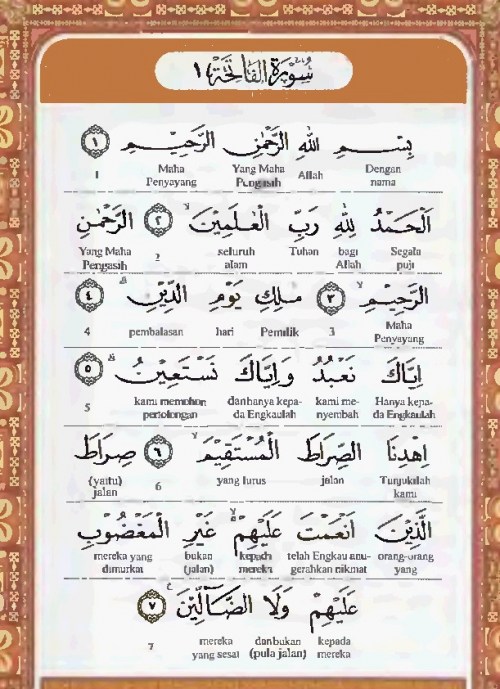 سُوْرَةُ الْفَاتِحَةِ ١
بِسْمِ اللّٰهِ الرَّحْمٰنِ الرَّحِيْمِ ۝١
1 Maha Penyayang Yang Maha Pengasih Allah Dengan nama
اَلْحَمْدُ لِلّٰهِ رَبِّ الْعٰلَمِيْنَۙ ۝٢ الرَّحْمٰنِ
Yang Maha Pengasih 2 seluruh alam Tuhan bagi Allah Segala puji
الرَّحِيْمِۙ ۝٣ مٰلِكِ يَوْمِ الدِّيْنِۗ ۝٤
4 pembalasan hari Pemilik 3 Maha Penyayang
اِيَّاكَ نَعْبُدُ وَاِيَّاكَ نَسْتَعِيْنُۗ ۝٥
5 kami memohon pertolongan danhanya kepada Engkaulah kami menyembah Hanya kepada Engkaulah
اِهْدِنَا الصِّرَاطَ الْمُسْتَقِيْمَۙ ۝٦ صِرَاطَ
(yaitu) jalan 6 yang lurus jalan Tunjukilah kami
الَّذِيْنَ اَنْعَمْتَ عَلَيْهِمْ ۙ غَيْرِ الْمَغْضُوْبِ
mereka yang dimurkai bukan (jalan) kepada mereka telah Engkau anugerahkan nikmat orang-orang yang
عَلَيْهِمْ وَلَا الضَّاۤلِّيْنَ ۝٧
7 mereka yang sesat danbukan (pula jalan) kepada mereka